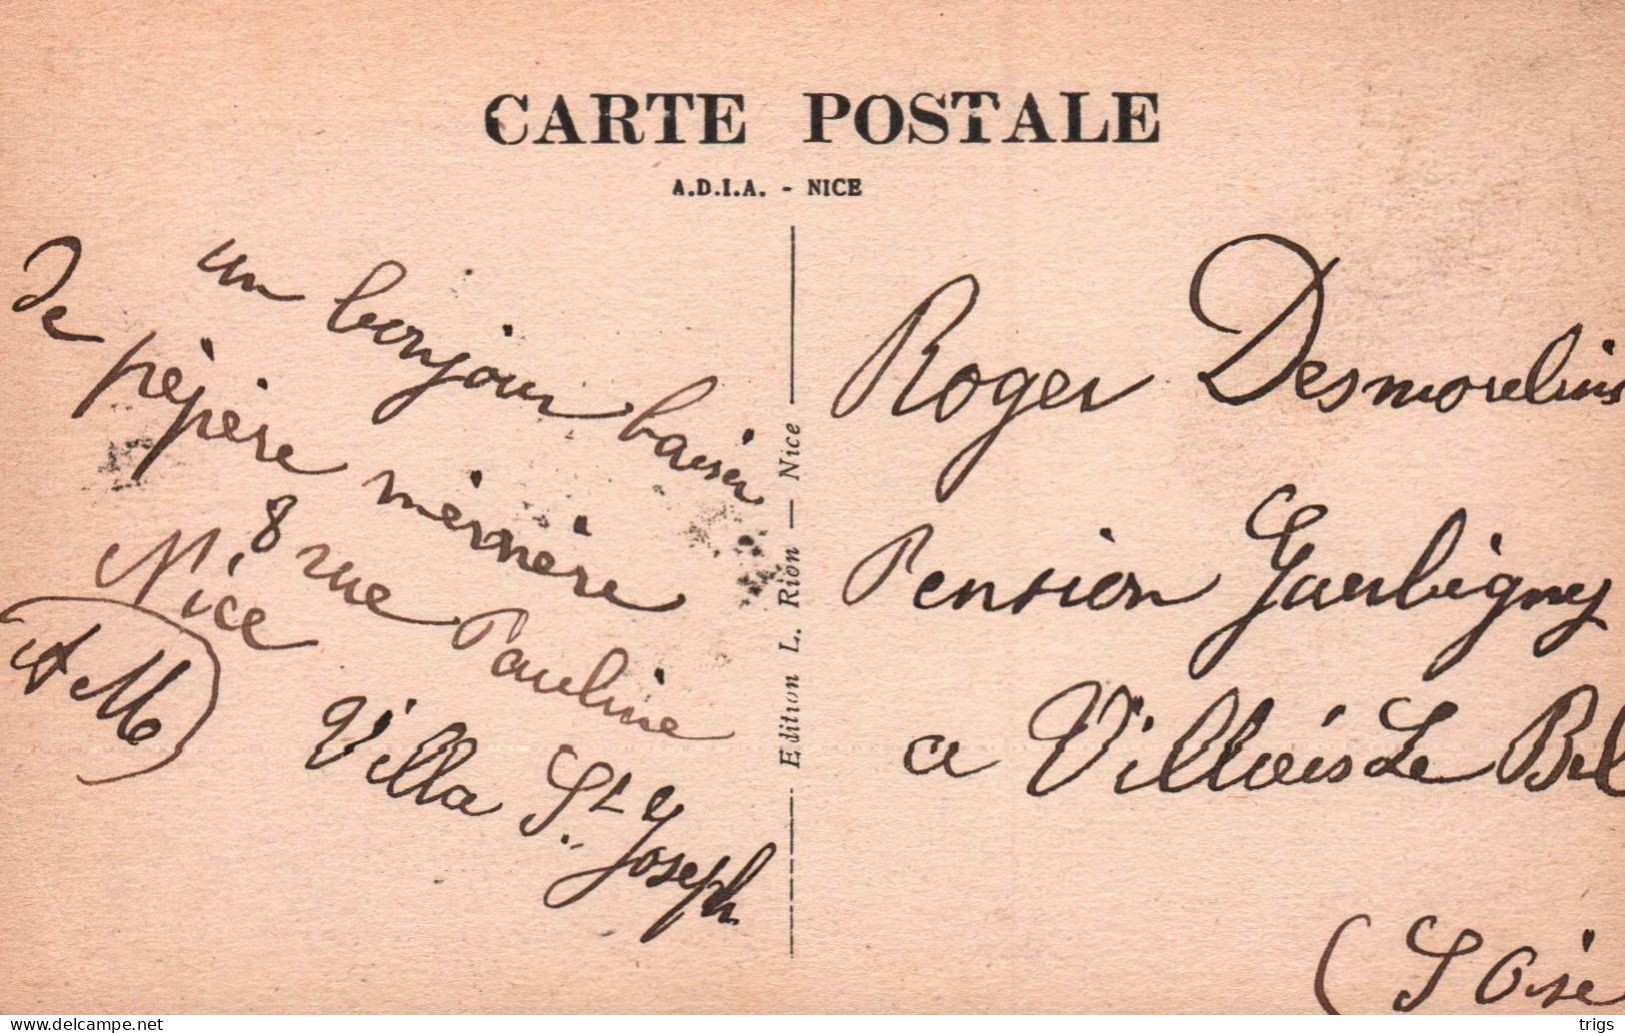 CARTE POSTALE
A.D.I.A. - NICE
un bonjour baiser
de pépère mémère
8 rue Pauline
Nice
(A M)
Villa St Joseph
Edition L. Rion — Nice
Roger Desmorelins
Pension Gaubigny
a Villiers Le Bel
(S Oise
delcampe.net
trigs